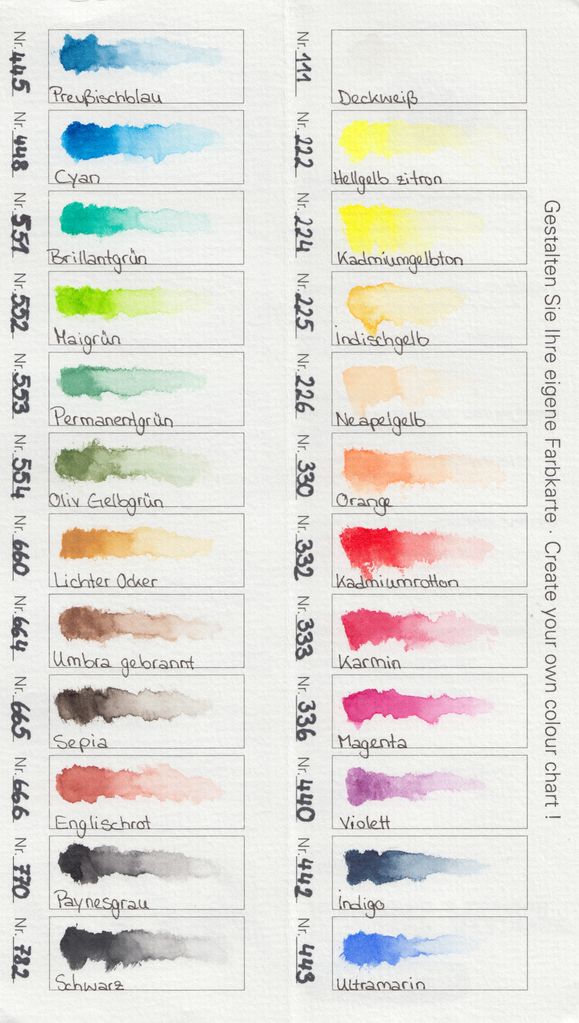 Nr. 445
Preußischblau
Nr. 448
Cyan
Nr. 551
Brillantgrün
Nr. 552
Maigrün
Nr. 553
Permanentgrün
Nr. 554
Oliv Gelbgrün
Nr. 660
Lichter Ocker
Nr. 664
Umbra gebrannt
Nr. 665
Sepia
Nr. 666
Englischrot
Nr. 770
Paynesgrau
Nr. 782
Schwarz
Nr. 111
Deckweiß
Nr. 222
Hellgelb zitron
Nr. 224
Kadmiumgelbton
Nr. 225
Indischgelb
Nr. 226
Neapelgelb
Nr. 330
Orange
Nr. 332
Kadmiumrotton
Nr. 333
Karmin
Nr. 336
Magenta
Nr. 440
Violett
Nr. 442
Indigo
Nr. 443
Ultramarin
Gestalten Sie Ihre eigene Farbkarte · Create your own colour chart !